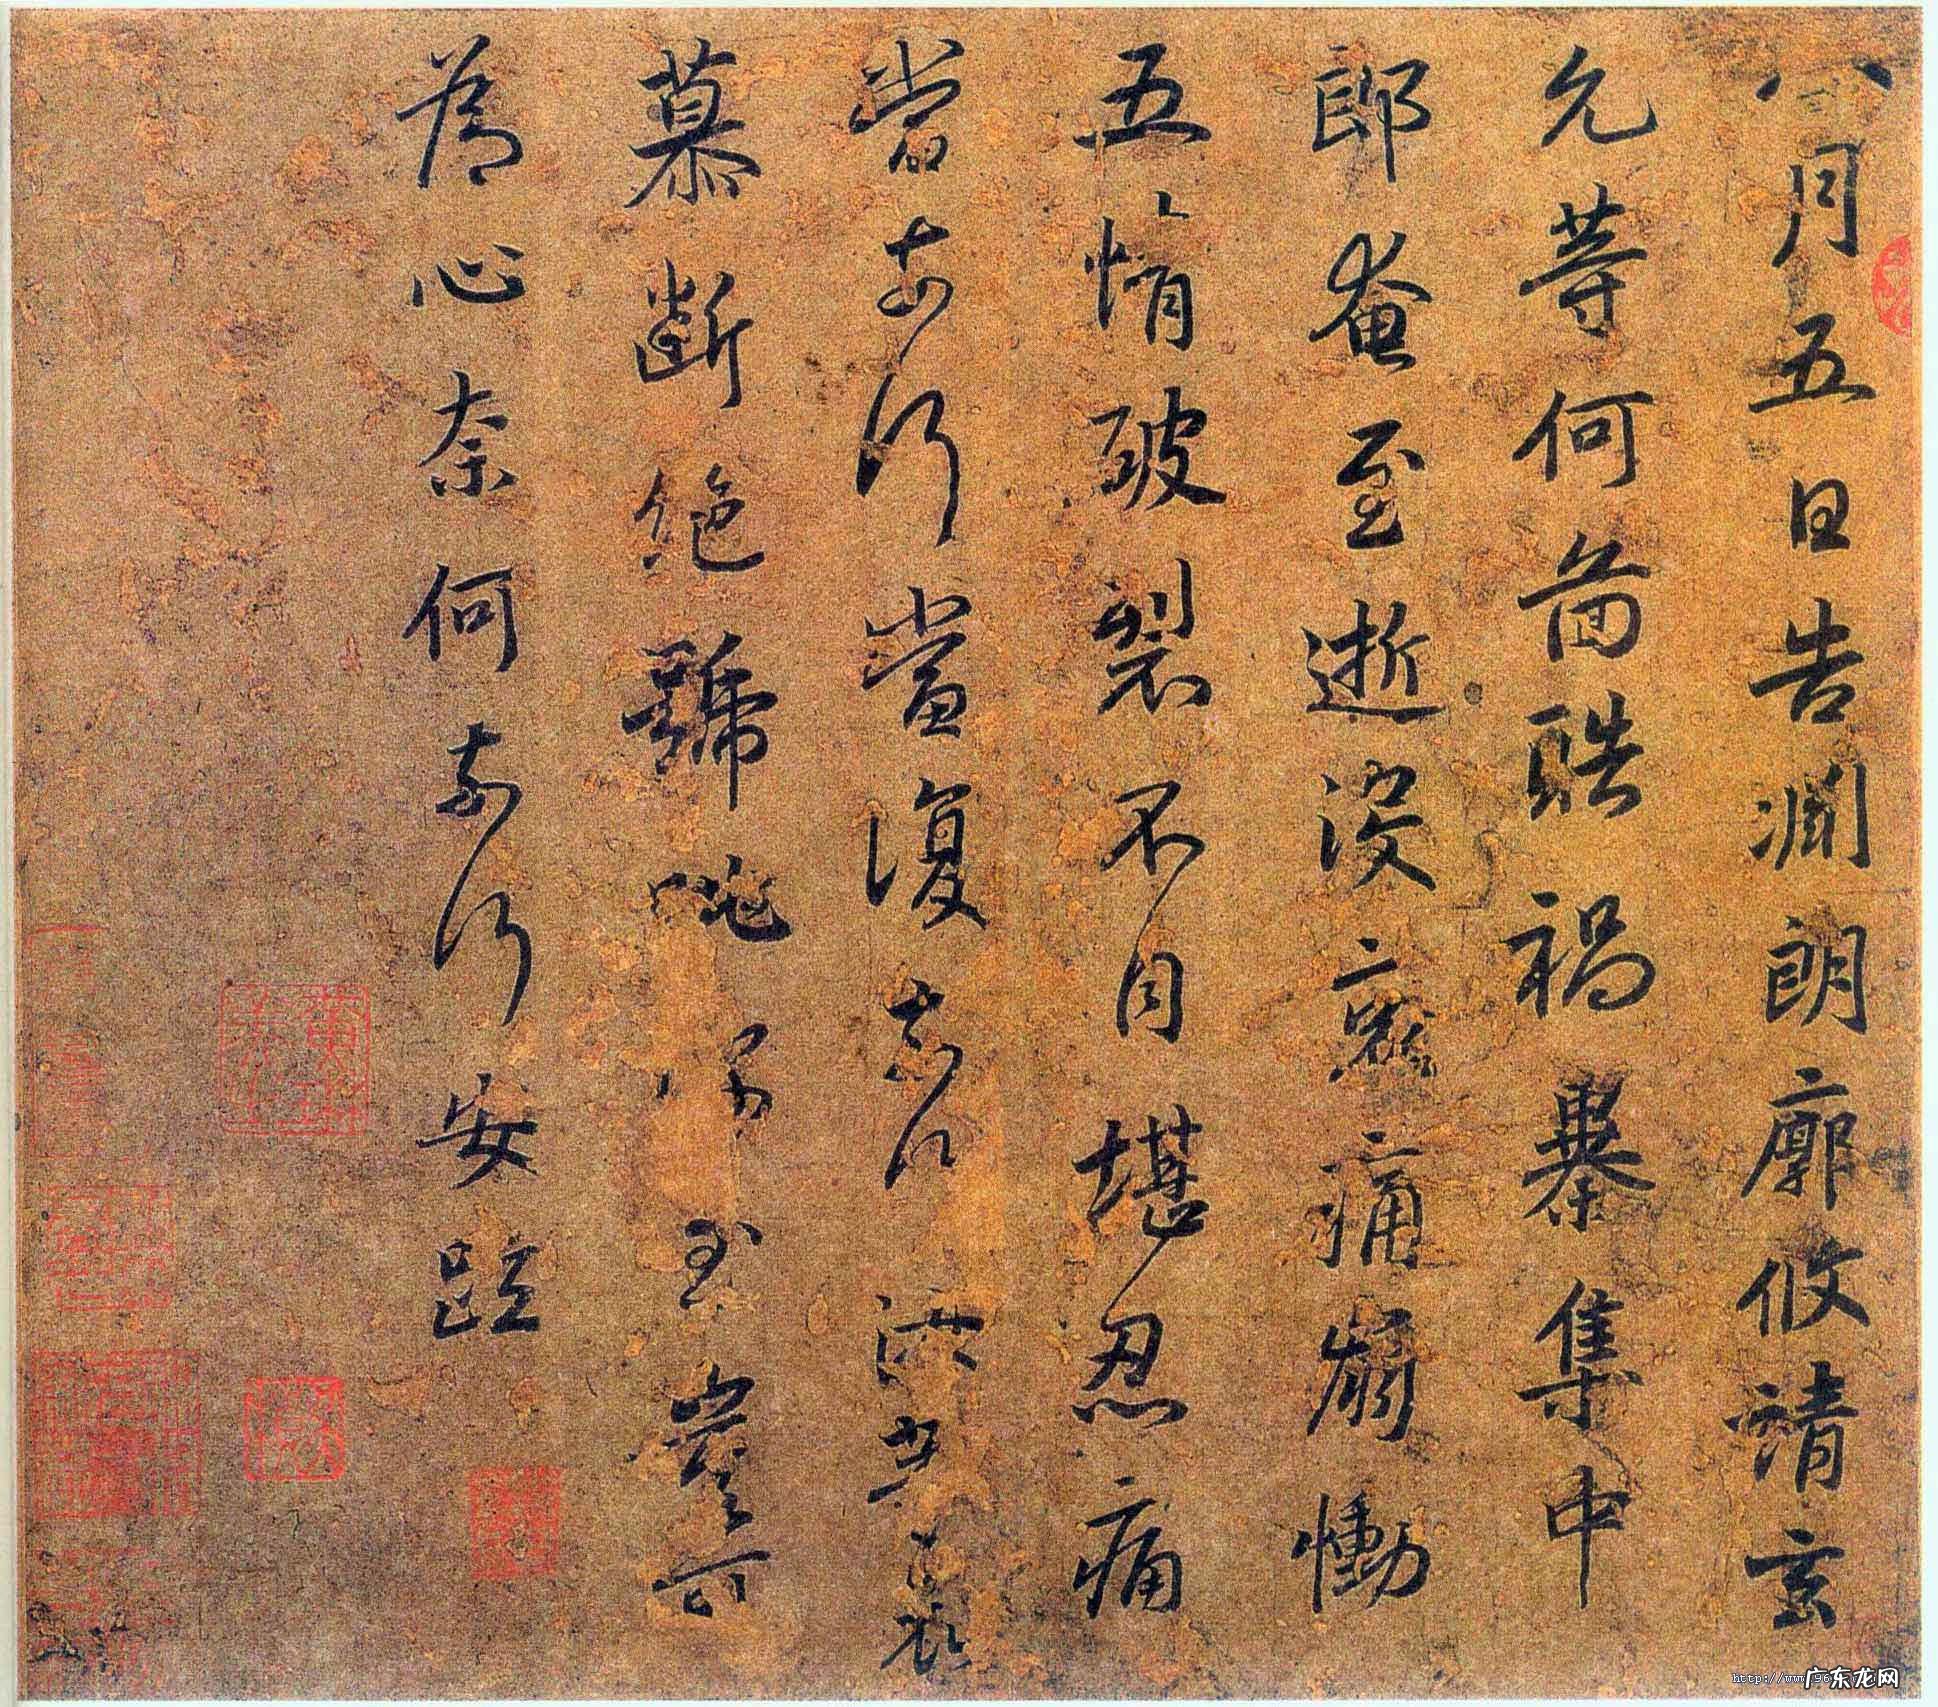 八月五日告淵朗廓攸靖玄
允等何圖酷禍暴集中
郎奄至逝沒哀痛崩慟
五情破裂不自堪忍痛
當奈何當復奈何汝等哀
慕斷絕號咷深至豈可
為心奈何奈何安疏
广东龙网